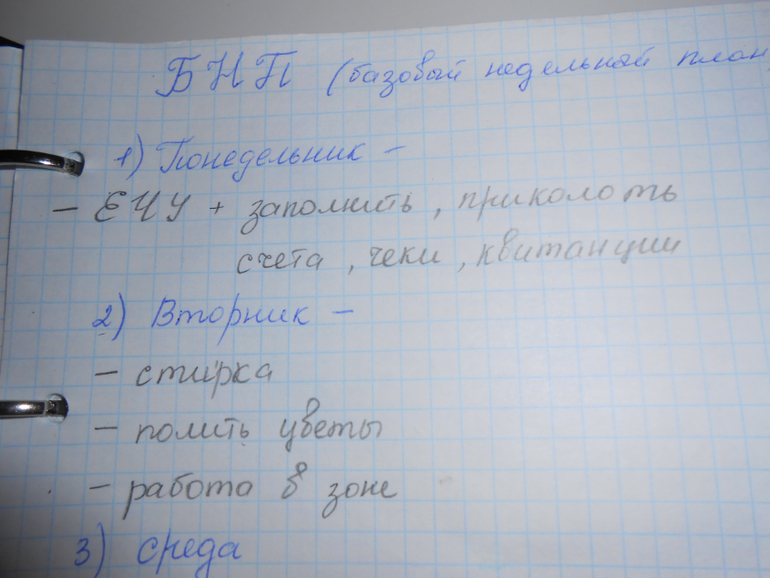 БНП (базовый недельной план
1) Понедельник -
- ЕЧУ + заполнить, приколоть
счета, чеки, квитанции
2) Вторник -
- стирка
- полить цветы
- работа в зоне
3) среда